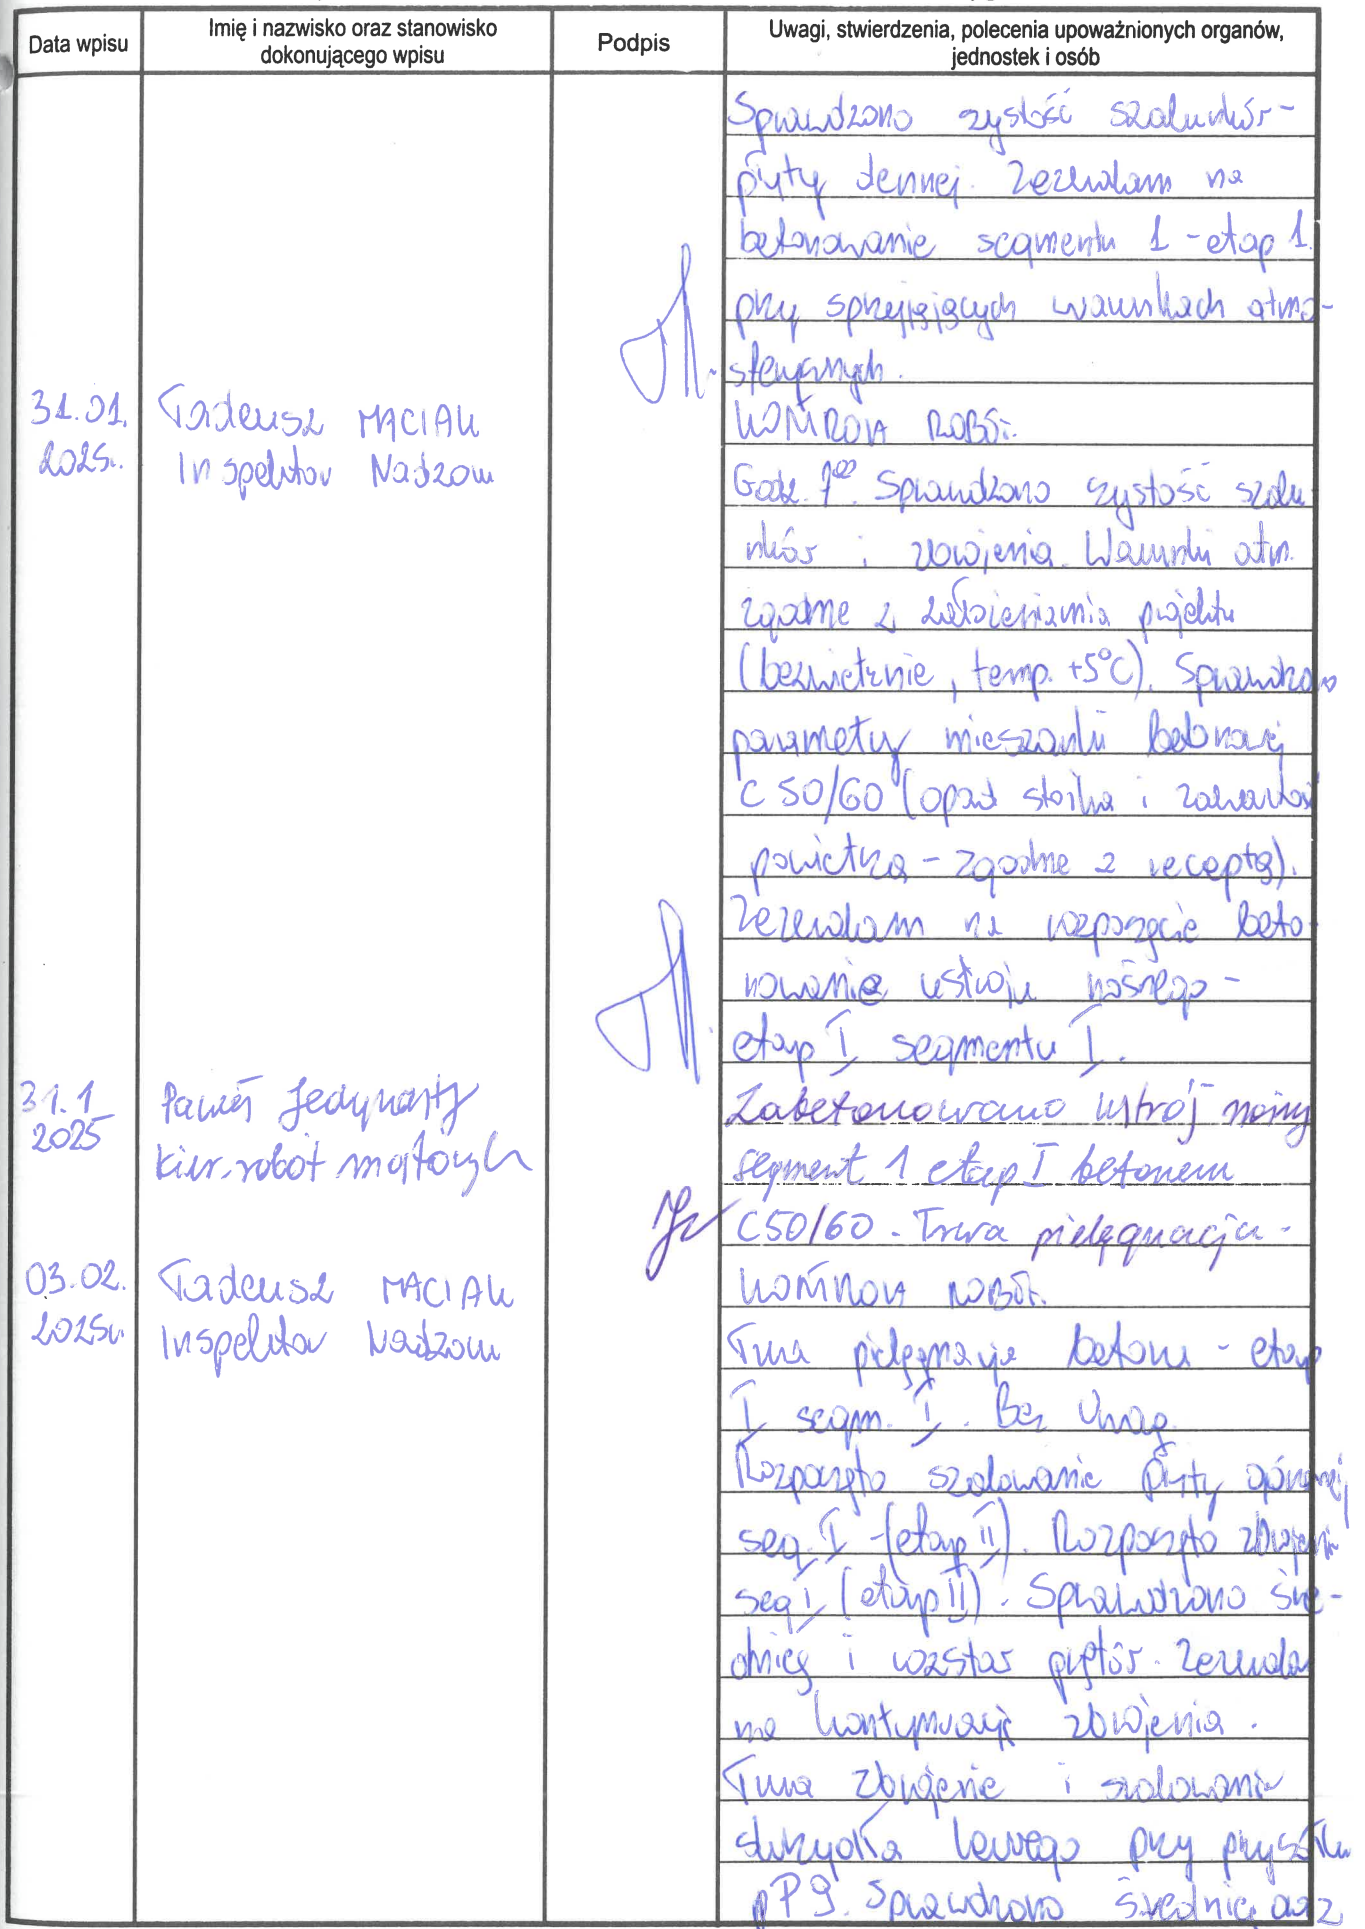 Data wpisu
Imię i nazwisko oraz stanowisko
dokonującego wpisu
Podpis
Uwagi, stwierdzenia, polecenia upoważnionych organów,
jednostek i osób
Sprawdzono czystość szalunków-
płyty dennej. Zezwalam na
betonowanie segmentu 1 - etap 1.
przy sprzyjających warunkach atmo-
sferycznych.
31.01.
2025r.
Tadeusz MACIAK
Inspektor Nadzoru
KONTROLA ROBÓT.
Godz. 7⁰⁰. Sprawdzono czystość szalu
nków i zbrojenia. Warunki atm.
zgodne z założeniami projektu
(bezwietrznie, temp. +5°C). Sprawdzono
parametry mieszanki betonowej
C 50/60 (opad stożka i zawartość
powietrza - zgodne z receptą).
Zezwalam na rozpoczęcie beto-
nowania ustroju nośnego -
etap I segmentu I.
31.1
2025
Paweł Jedynasty
kier. robót mostowych
Zabetonowano ustrój nośny
segment 1 etap I betonem
C50/60 - Trwa pielęgnacja -
03.02.
2025r.
Tadeusz MACIAK
Inspektor Nadzoru
KONTROLA ROBÓT.
Trwa pielęgnacja betonu - etap
I segm. I. Bez Uwag.
Rozpoczęto szalowanie płyty górnej
seg. I - (etap II). Rozpoczęto zbrojenie
seg I (etap II). Sprawdzono śre-
dnicę i rozstaw prętów. Zezwalam
na kontynuację zbrojenia.
Trwa zbrojenie i szalowanie
skrzydła lewego przy przyczółku
pP9. Sprawdzono średnicę oraz